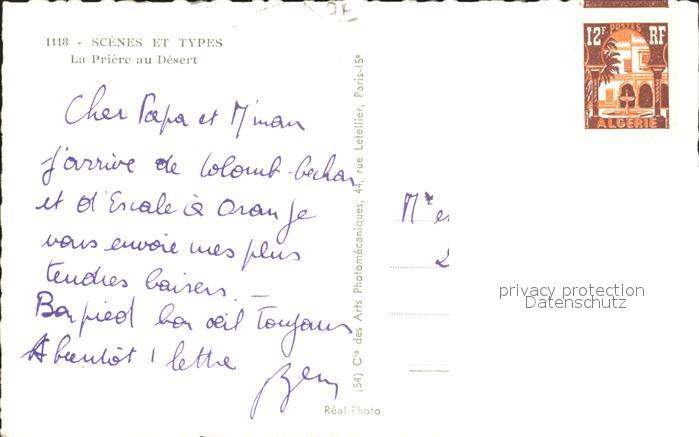 1118 - SCÈNES ET TYPES
La Prière au Désert
12F POSTES RF
ALGÉRIE
Cher Papa et M'man
j'arrive de Colomb-Bechar
et d'Escale à Oran je
vous envoie mes plus
tendres baisers. _
Bon pied bon œil Toujours
A bientôt 1 lettre
Mr e
(54) Cie des Arts Photomécaniques, 44, rue Letellier, Paris-15e
Réal-Photo
privacy protection
Datenschutz